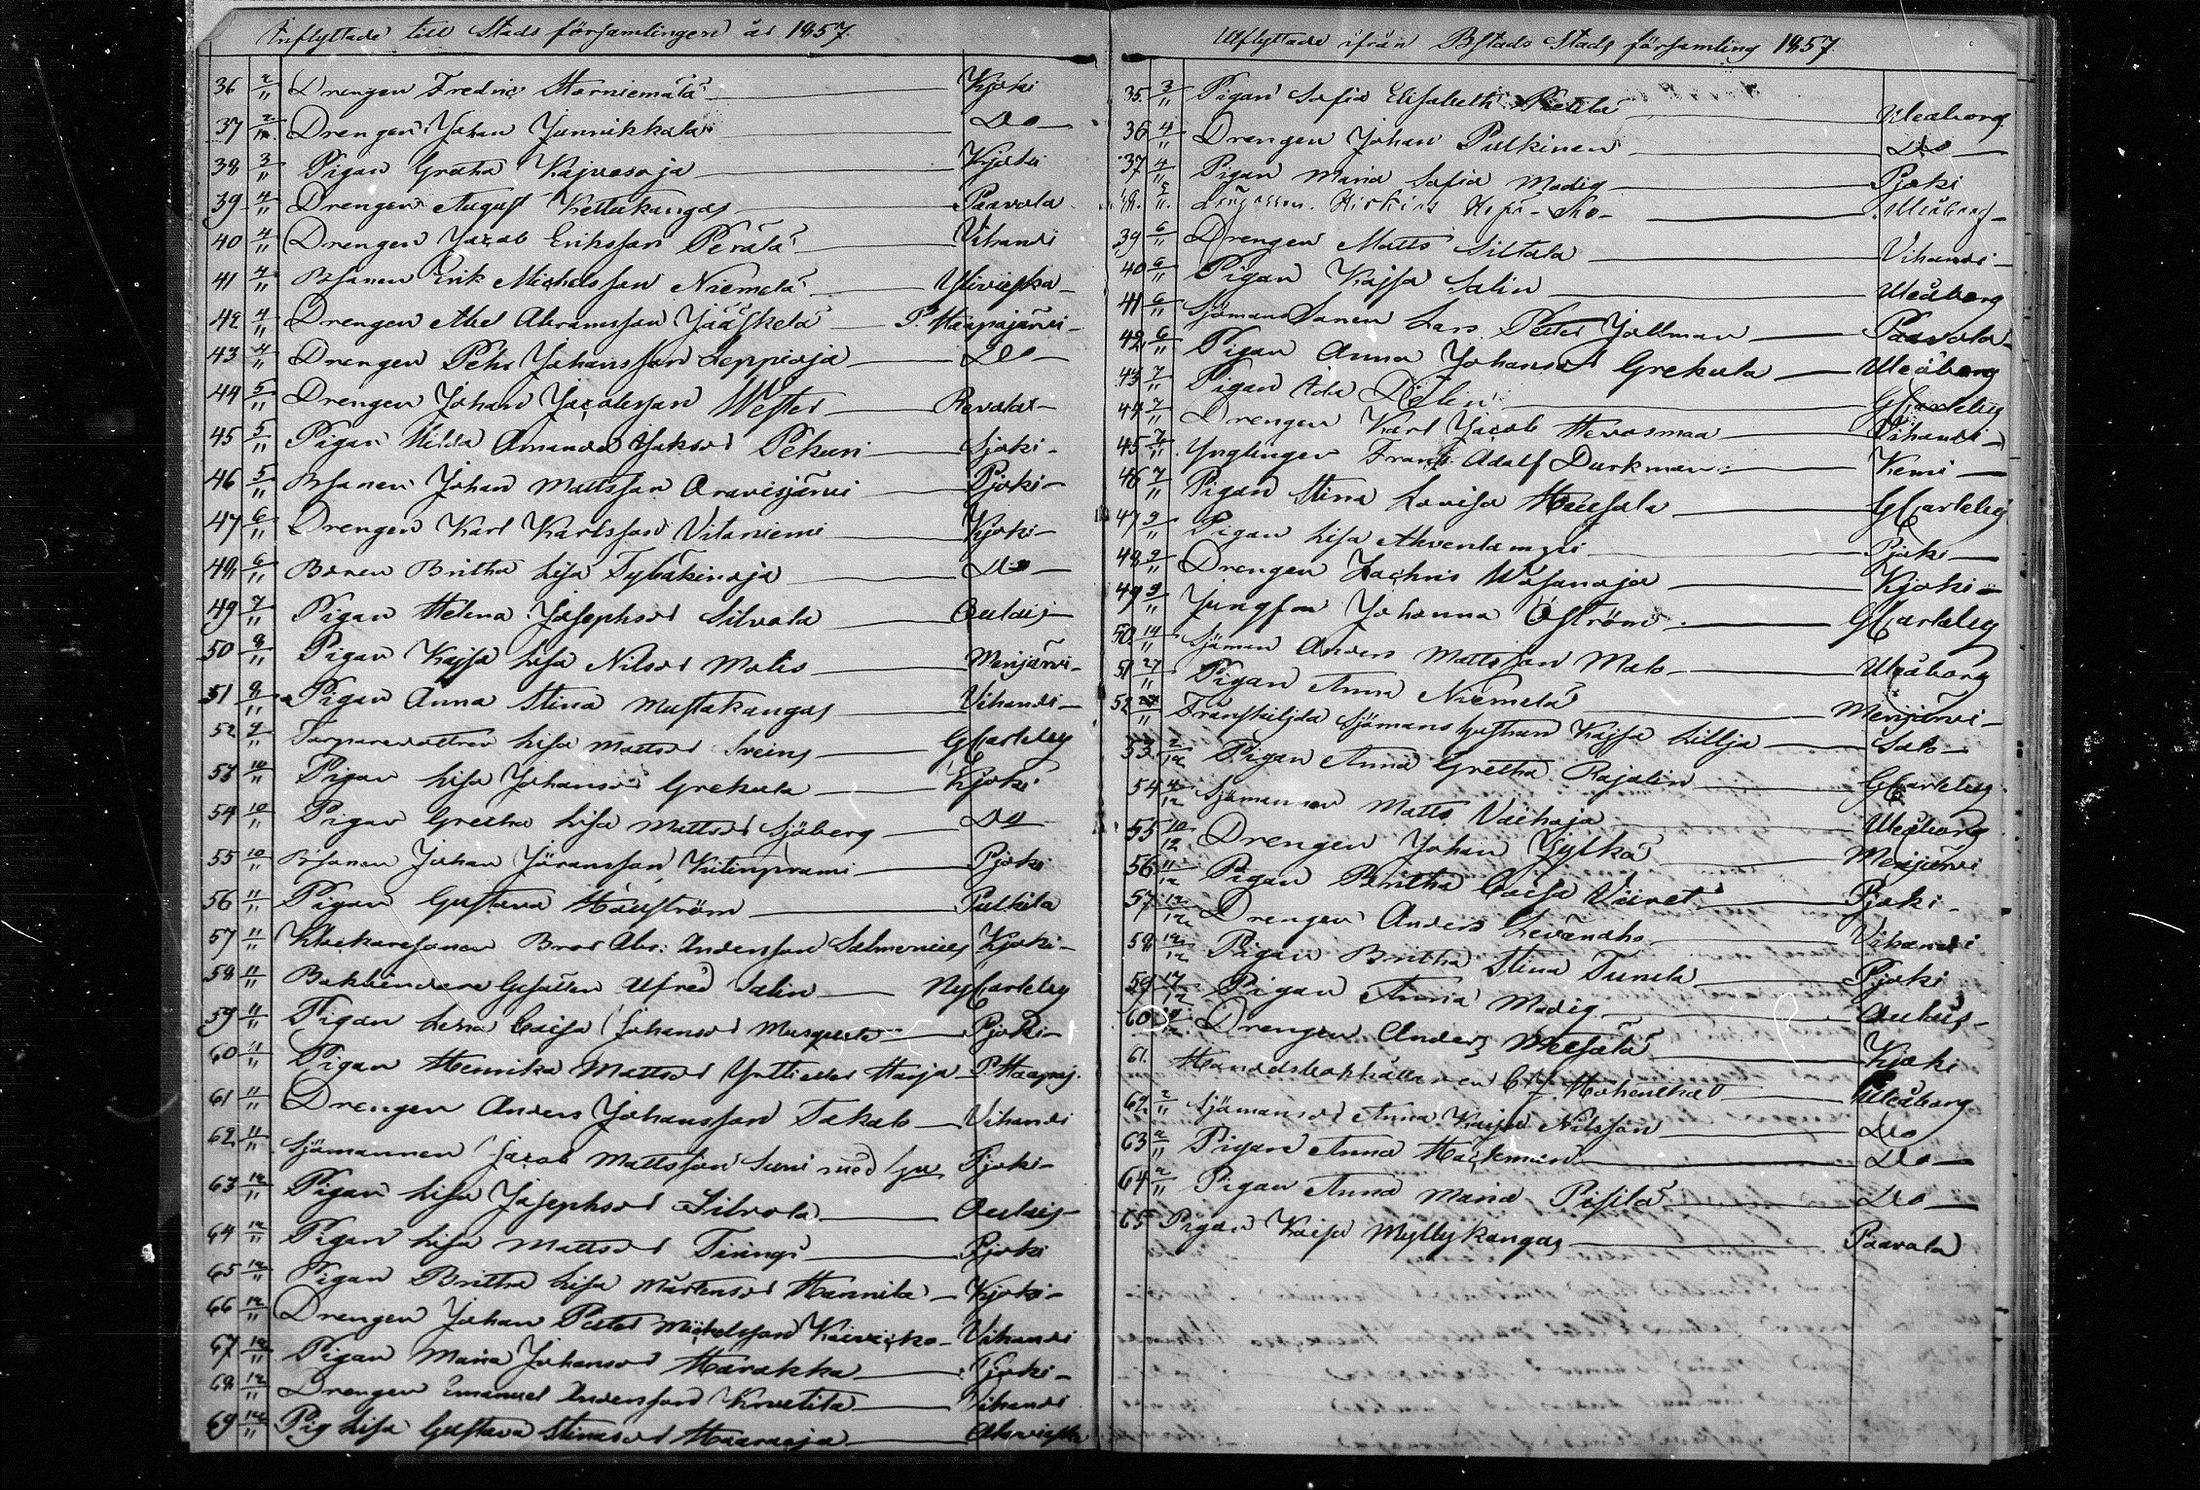 Inflyttade till Stads församlingen år 1857
36 2/11 Drengen Fredric Storniemälä Kjoki
37 2/11 Drengen Johan Junnikkala Do
38 3/11 Pigan Gretha Kajvosoja Kjoki
39 4/11 Drengen August Kettukangas Paavola
40 4/11 Drengen Jacob Eriksson Perälä Vihandi
41 4/11 Bsonen Erik Michelsson Niemelä Ylivieska
42 4/11 Drengen Abel Abramsson Jääskelä P. Haapajärvi
43 4/11 Drengen Pehr Johansson Leppioja Do
44 5/11 Drengen Johan Jacobsson Wester Revolax
45 5/11 Pigan Hilda Amanda Jaksdr Pekuri Sjoki
46 5/11 Bsonen Johan Mattsson Oravisjärvi Pjoki
47 6/11 Drengen Karl Karlsson Vitaniemi Kjoki
48 6/11 Britha Lisa Do
49 7/11 Pigan Helena Josephsdr Silvola Oulais
50 8/11 Pigan Kajsa Lisa Nilsdr Molis Merijärvi
51 8/11 Pigan Anna Stina Mustakangas Vihandi
52 9/11 Torparedottren Lisa Mattsdr Sveins GCarleby
53 10/11 Pigan Lisa Johansdr Grekula Kjoki
54 10/11 Pigan Gretha Lisa Mattsdr Sjöberg Do
55 10/11 Bsonen Johan Jöransson Pjoki
56 11/11 Pigan Gustava Hällström Pulkila
57 11/11 Klockaresonen Abr: Andersson Salmenius Kjoki
58 11/11 Bokbindare Gesällen Alfred Salin NyCarleby
59 11/11 Pigan Lena Caisa Johansdr Pjoki
60 11/11 Pigan Henrika Mattsdr P. Haapaj.
61 11/11 Drengen Anders Johansson Takalo Vihandi
62 11/11 Sjömannen Jacob Mattsson Suni med hu Pjoki
63 12/11 Pigan Lisa Josephsdr Silvola Oulais
64 12/11 Pigan Lisa Mattsdr Pjoki
65 12/11 Pigan Britha Lisa Mårtensdr Hannila Kjoki
66 12/11 Drengen Johan Petter Michelsson Kaivisko Vihandi
67 12/11 Pigan Maria Johansdr Harakka Pjoki
68 12/11 Drengen Emanuel Andersson Knuutila Vihandi
69 12/11 Pig Lisa Gustava Haaraoja
Utflyttade ifrån Bstads Stads församling 1857
35 3/11 Pigan Sofia Elisabeth Pietilä Uleåborg
36 4/11 Drengen Johan Pulkinen Do
37 4/11 Pigan Maria Sofia Modig Pjoki
Uleåborg
39 6/11 Drengen Matts Siltala Vihandi
40 6/11 Pigan Kajsa Salin Uleåborg
41 6/11 Sjömans Sonen Lars Petter Jallman Paavola
42 6/11 Pigan Anna Johansdr Grekula Uleåborg
43 7/11 Pigan Ida GCarleby
44 7/11 Drengen Karl Jacob Hevosmaa Vihandi
45 7/11 Ynglingen Frans Adolf Durkman Kemi
46 7/11 Pigan Stina Lovisa GCarleby
47 9/11 Pigan Lisa Ahvenlampi Pjoki
48 9/11 Drengen Zachris Wosanoja Kjoki
49 9/11 Jungfru Johanna Öström GCarleby
50 14/11 Sjöman Anders Mattsson Malo Uleåborg
51 27/11 Pigan Anna Niemelä Merijärvi
52 27/11 Frånskiljda Sjömans hustrun Kajsa Lillja Salo
53 2/12 Pigan Anna Gretha Rajalin GCarleby
54 4/12 Sjömannen Matts Vaihoja Uleåborg
55 10/12 Drengen Johan Jylkä Merijärvi
56 11/12 Pigan Britha Caisa Viiret Pjoki
57 12/12 Drengen Anders Levänaho Vihandi
58 12/12 Pigan Britha Stina Tunela Pjoki
59 17/12 Pigan Anna Modig Oulais
60 Drengen Anders Metsälä Kjoki
61 Handelsbokhållaren Hohenthal Uleåborg
62 2/11 Sjömansdr Anna Kajsa Nilsson Do
63 2/11 Pigan Anna Hackman Do
64 2/11 Pigan Anna Maria Pisilä Do
65 Pigan Kaisa Myllykangas Paavola